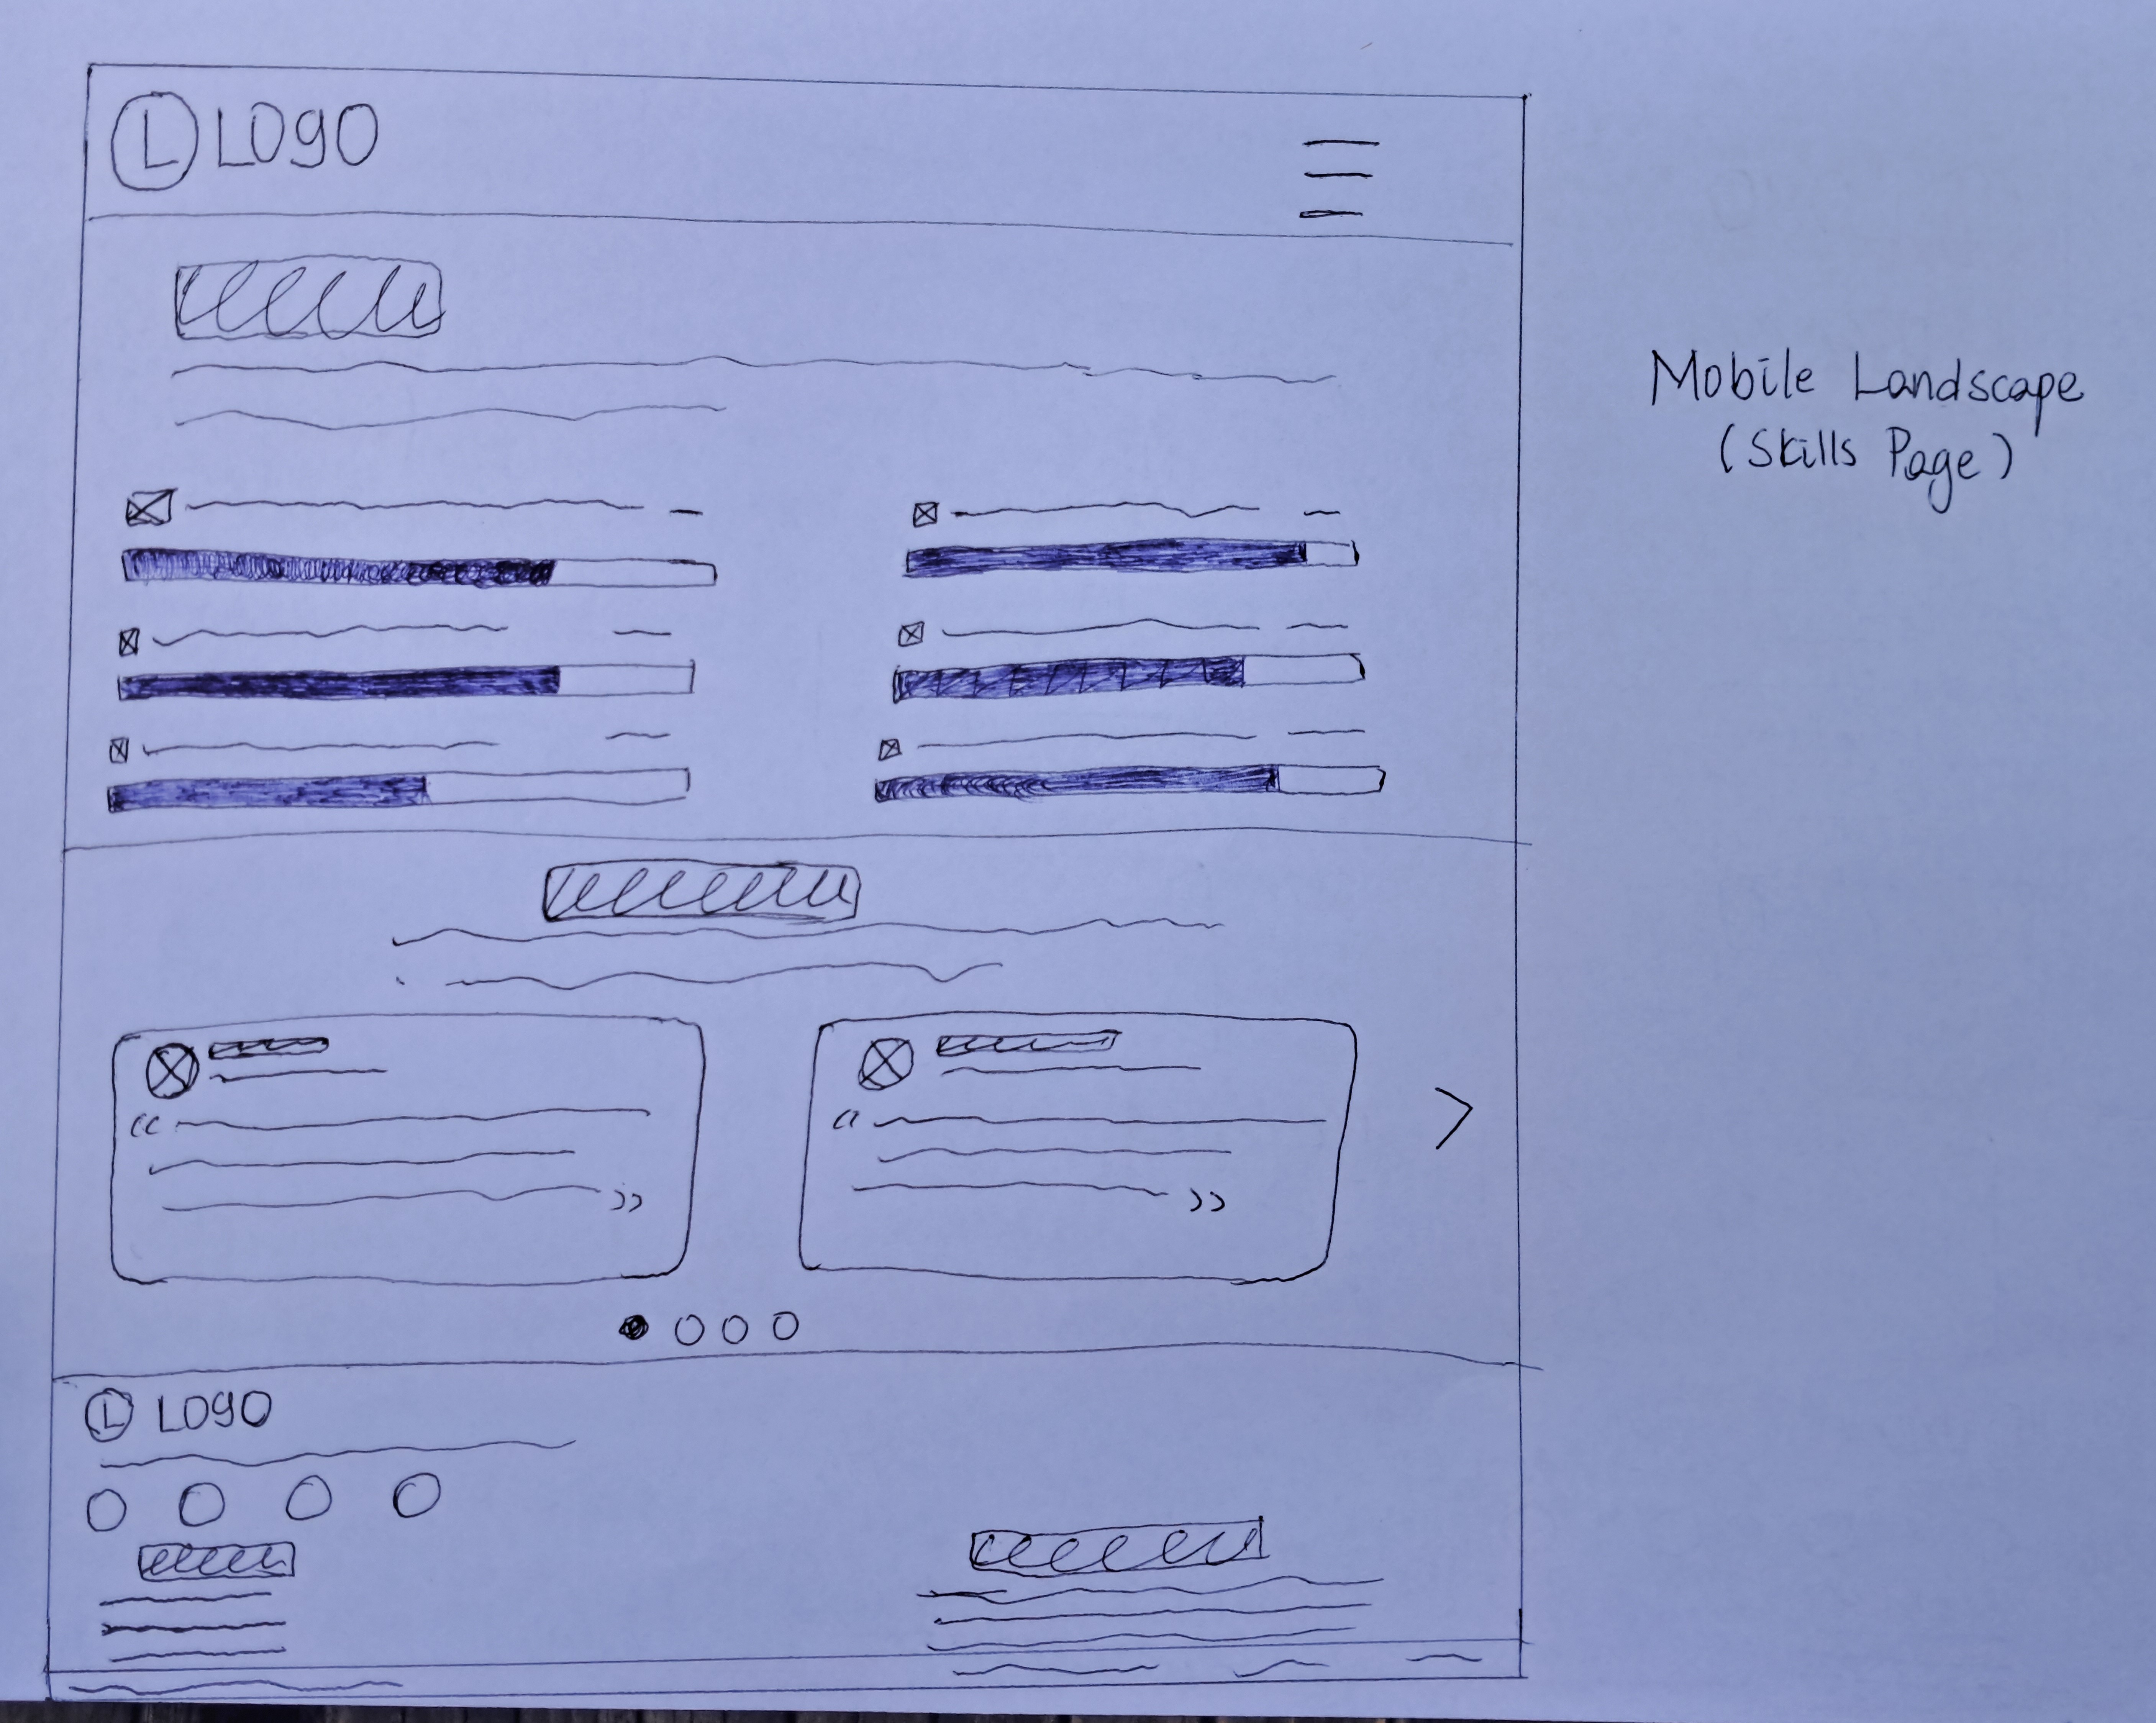 L LOgO
Mobile Landscape
(Skills Page)
“
”
“
”
L LOgO